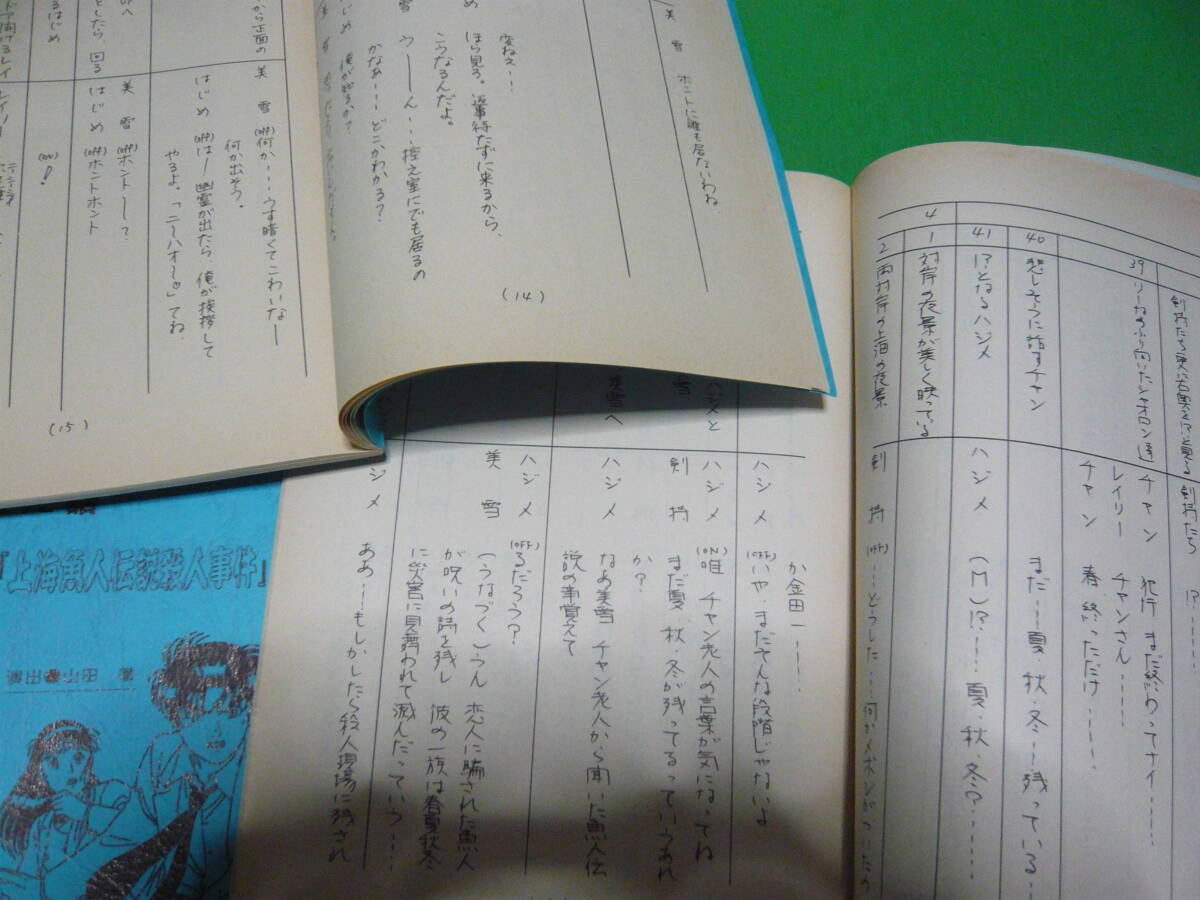 美雪 ホントに誰も居ないわね
変ねえ……
ほら見ろ。返事待たずに来るから、
こうなるんだよ。
雪 う――ん…控え室にでも居るの
かなぁ……どこかわかる?
(14)
から正面の
美雪 (off)何か……うす暗くてこわいなー
何か出そう。
はじめ (off)は!幽霊が出たら、俺が挨拶して
やるよ、「ニーハオ〜」てね
としたら、回る
美雪 (off)ホントー?
はじめ (off)ホントホント
(ON)!
(15)
剣持たち
!?……
39
リーの
ふり向いたシャオロン達
チャン 犯行 まだ終わってナイ……
レイリー チャンさん……
チャン 春 終っただけ……
40
悲しそうに話すチャン
まだ……夏・秋・冬…残っている…
41
!?となるハジメ
ハジメ (M)!?……夏・秋・冬?……
4
1
対岸の夜景が美しく映っている
2
両対岸の上海の夜景
剣持 (OFF)…どうした……何か
か金田一……
ハジメ (OFF)いや、まだそんな段階じゃないよ
ハジメと
ハジメ (ON)唯 チャン老人の言葉が気になってね
剣持 まだ夏、秋、冬が残ってるっていうあれ
か?
美雪へ
ハジメ なあ美雪 チャン老人から聞いた魚人伝
説の事覚えて
ハジメ (OFF)るだろう?
美雪 (うなづく)うん 恋人に騙された魚人
が呪いの詩を残し 彼の一族は春夏秋冬
に災害に見舞われて滅んだっていう……
ハジメ ああ…もしかしたら殺人現場に残され
『上海魚人伝説殺人事件』